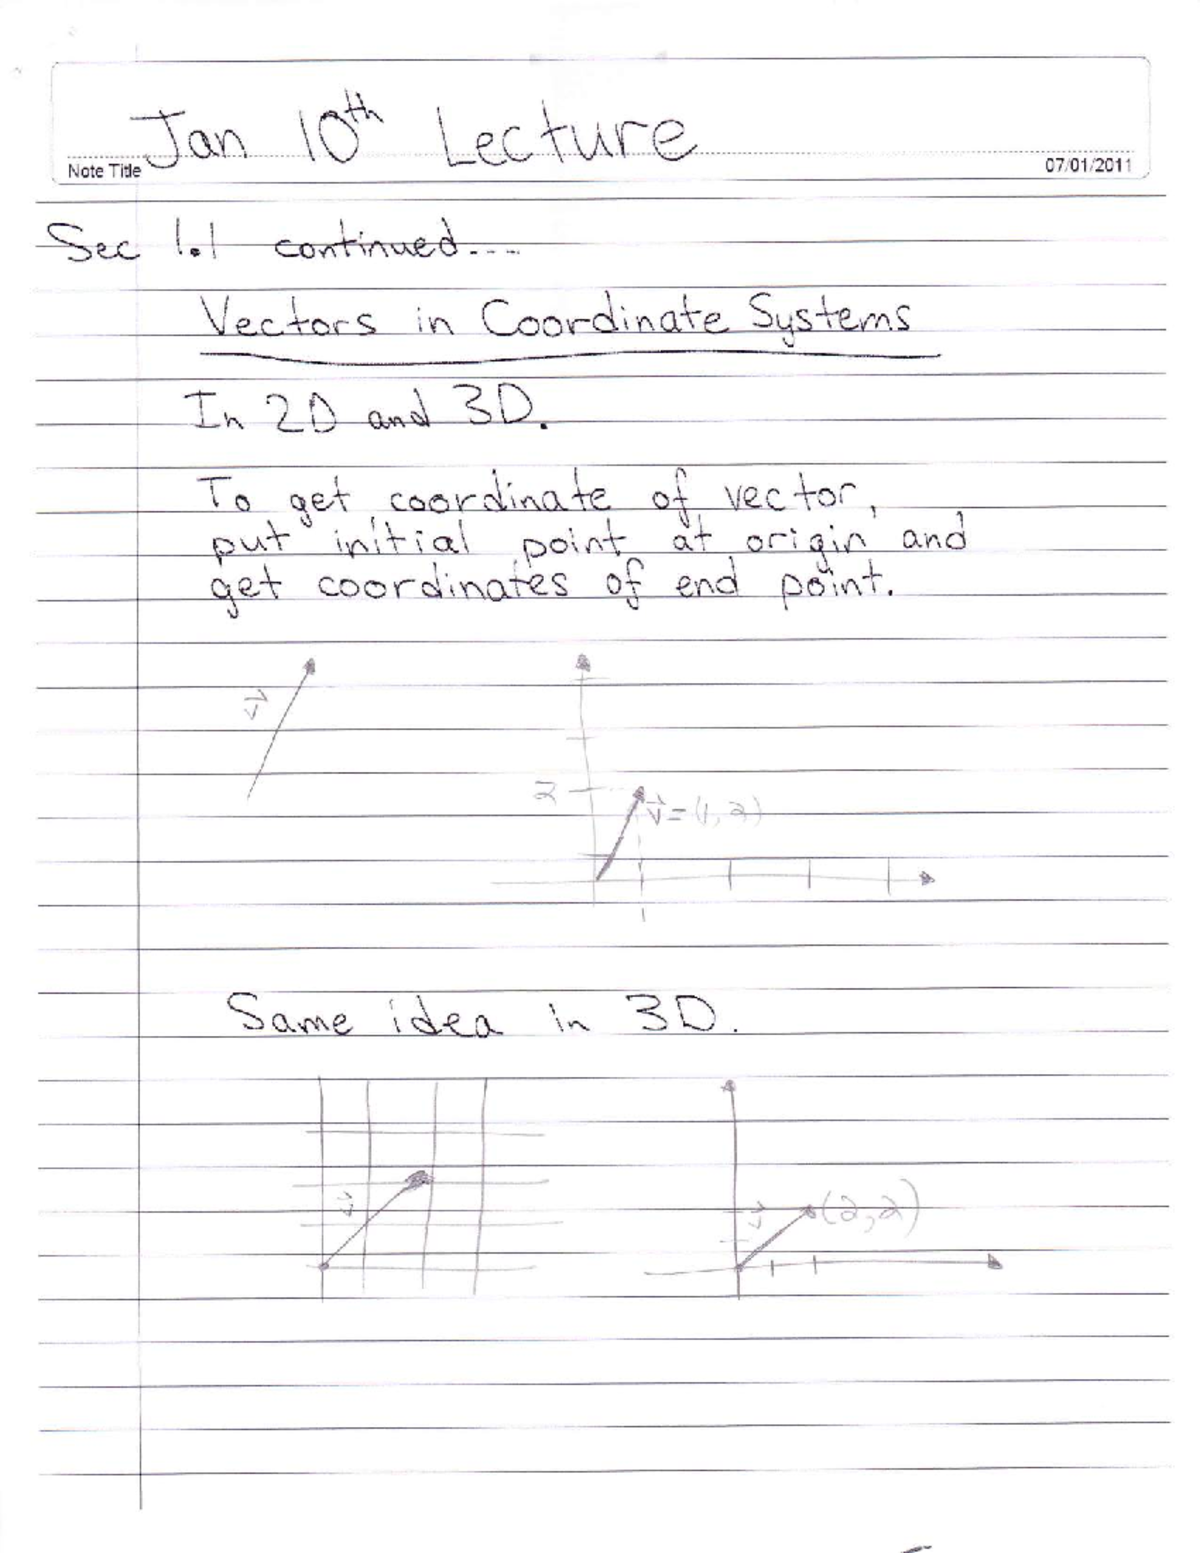 Jan 10th Lecture
Note Title
07/01/2011
Sec 1.1 continued....
Vectors in Coordinate Systems
In 2D and 3D.
To get coordinate of vector,
put initial point at origin and
get coordinates of end point.
v⃗
2
v⃗ = (1, 2)
Same idea in 3D.
v⃗
v⃗
(2,2)